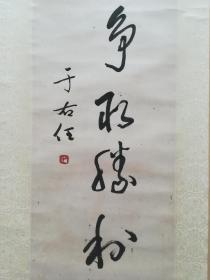 争取胜利
于右任